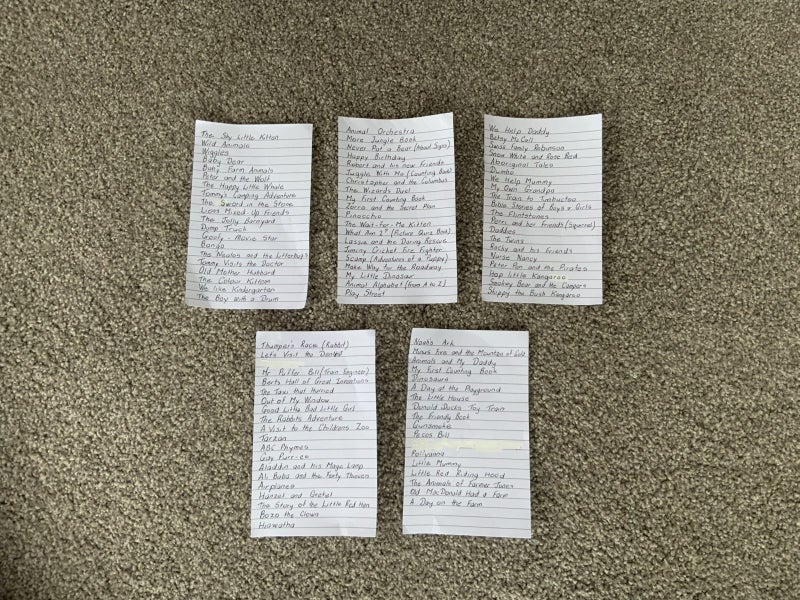 The Shy Little Kitten
Wild Animals
Wiggles
Baby Dear
Baby Farm Animals
Peter and the Wolf
The Happy Little Whale
Tommy's Camping Adventure
The Sword in the Stone
Lions Mixed-Up Friends
The Jolly Barnyard
Dump Truck
Goofy - Movie Star
Bongo
The Neatos and the Litterbugs
Tommy Visits the Doctor
Old Mother Hubbard
The Colour Kittens
We like Kindergarten
The Boy with a Drum
Animal Orchestra
More Jungle Book
Never Pat a Bear (About Signs)
Happy Birthday
Robert and his new Friends
Juggle With Me (Counting Book)
Christopher and the Columbus
The Wizards Duel
My First Counting Book
Zorro and the Secret Plan
Pinocchio
The Wait-For-Me Kitten
What Am I? (Picture Quiz Book)
Lassie and the Daring Rescue
Jiminy Cricket Fire Fighter
Scamp (Adventures of a Puppy)
Make Way for the Roadway
My Little Dinosaur
Animal Alphabet (from A to Z)
Play Street
We Help Daddy
Betsy McCall
Swiss Family Robinson
Snow White and Rose Red
Aboriginal Tales
Dumbo
We Help Mummy
My Own Grandpa
The Train to Timbuctoo
Bible Stories of Boys & Girls
The Flintstones
Perri and her Friends (Squirrel)
Daddies
The Twins
Rocky and his Friends
Nurse Nancy
Peter Pan and the Pirates
Hop Little Kangaroo
Smokey Bear and the Campers
Skippy the Bush Kangaroo
Thumper's Race (Rabbit)
Let's Visit the Dentist
Mr Puffer Bill (Train Engineer)
Berts Hall of Great Inventions
The Taxi that Hurried
Out of My Window
Good Little Bad Little Girl
The Rabbits Adventure
A Visit to the Childrens Zoo
Tarzan
ABC Rhymes
Gay Purr-ee
Aladdin and his Magic Lamp
Ali Baba and the Forty Theives
Airplanes
Hansel and Gretel
The Story of the Little Red Hen
Bozo the Clown
Hiawatha
Noah's Ark
and the Mountain of Gold
Animals and My Daddy
My First Counting Book
Dinosaurs
A Day at the Playground
The Little House
Donald Ducks Toy Train
The Friendly Book
Gunsmoke
Pecos Bill
Pollyanna
Little Mummy
Little Red Riding Hood
The Animals of Farmer Jones
Old MacDonald Had a Farm
A Day on the Farm